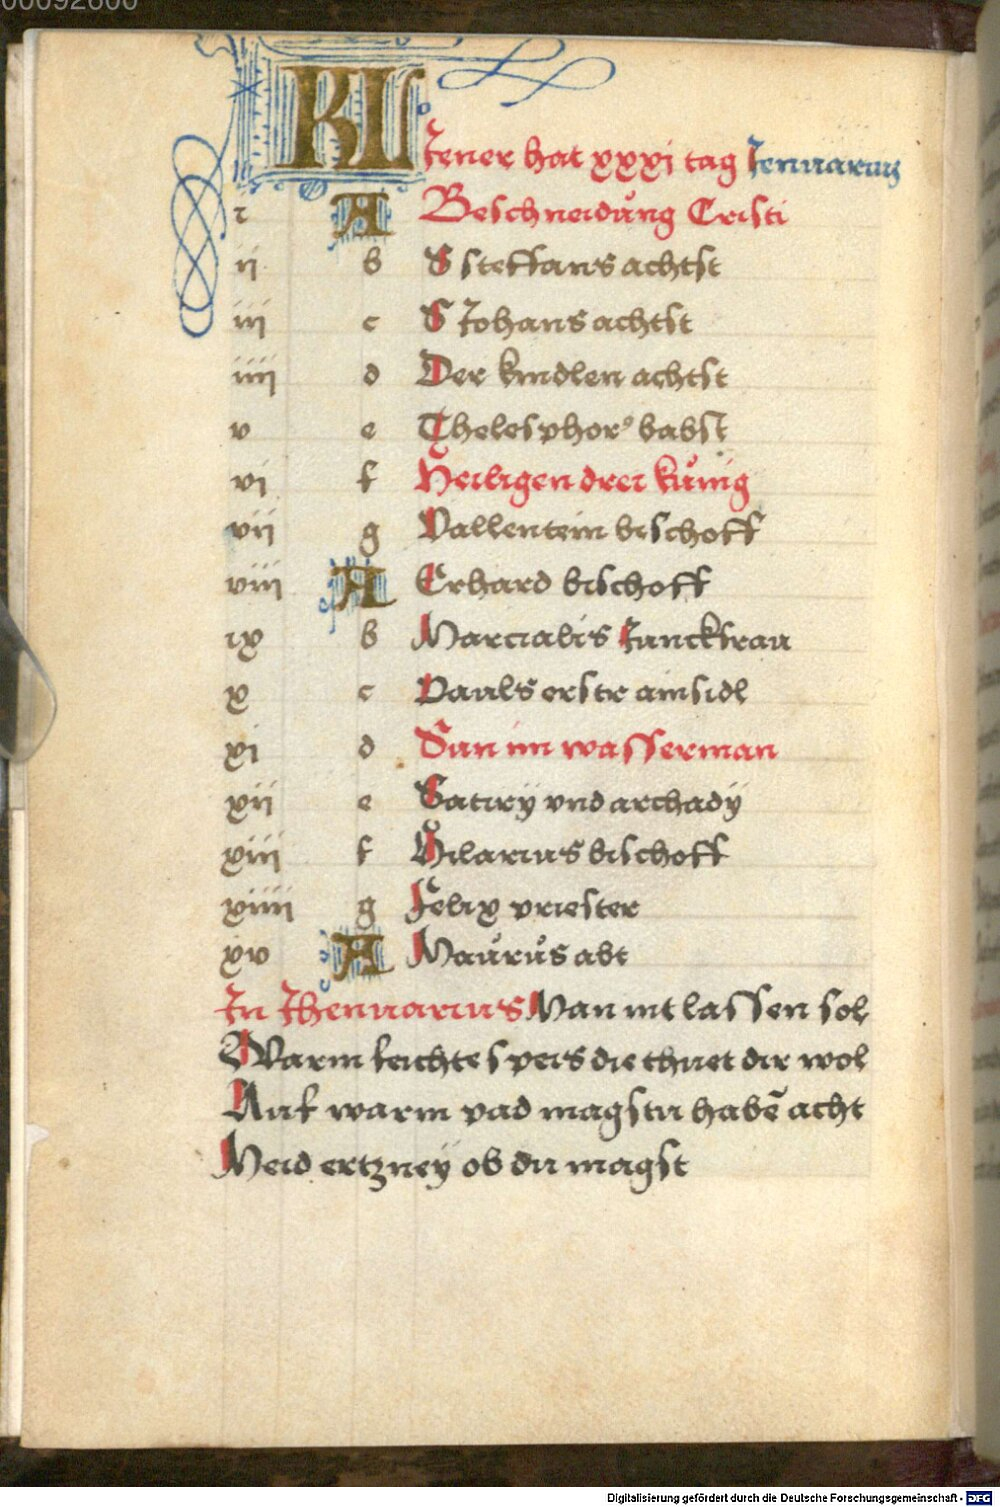 00092600
KL
Jener hat xxxi tag Jennuarius
i A Beschneidung Cristi
ii b S steffans achtst
iii c S Johans achtst
iiii d Der kindlen achtst
v e Thelesphor⁹ babst
vi f Heiligen drei künig
vii g Vallentein bischoff
viii A Erhard bischoff
ix b Marcialis Junckfrau
x c Pauls erstr ainsidl
xi d Sun im wasserman
xii e Satiry vnd archady
xiii f Hilarius bischoff
xiiii g Felix priester
xv A Maurus abt
In Jhennuarius Man nit lassen sol
Warm leichte speis die thuet dir wol
Auf warm pad magstu habē acht
Meid ertzney ob du magst
Digitalisierung gefördert durch die Deutsche Forschungsgemeinschaft - DFG